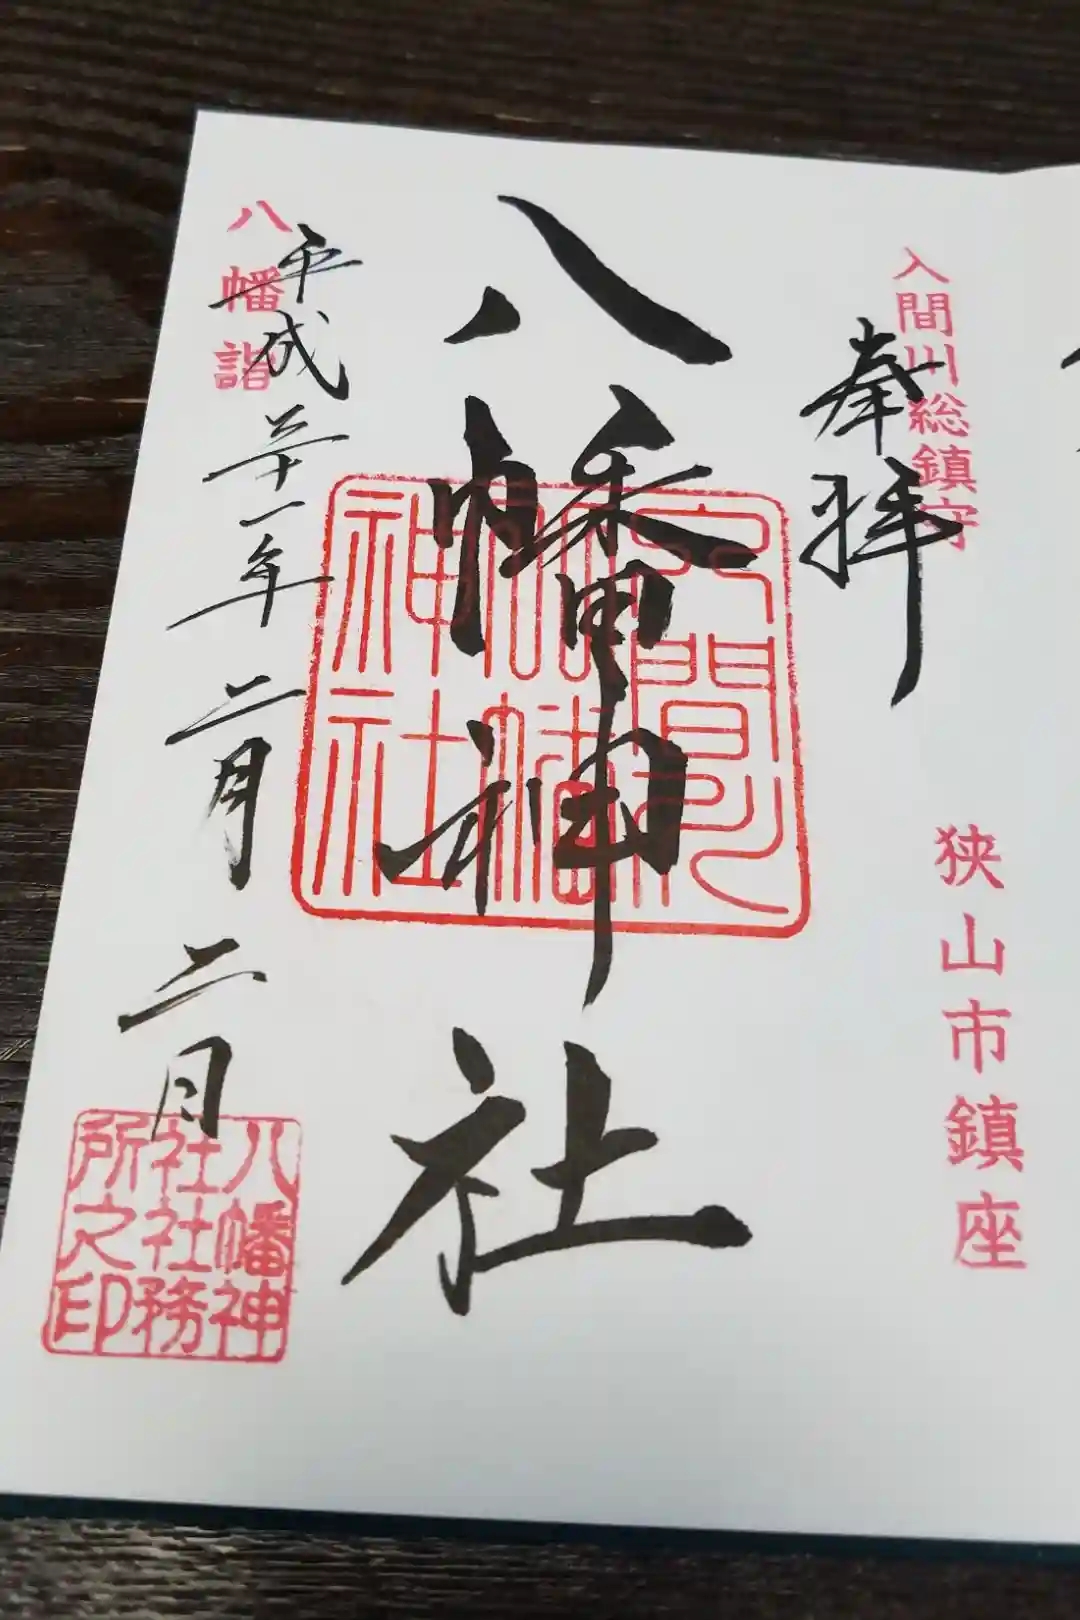 入間川総鎮守
狭山市鎮座
奉拝
八幡神社
入間
八幡
神社
八幡詣
平成三十一年二月二日
八幡神
社社務
所之印